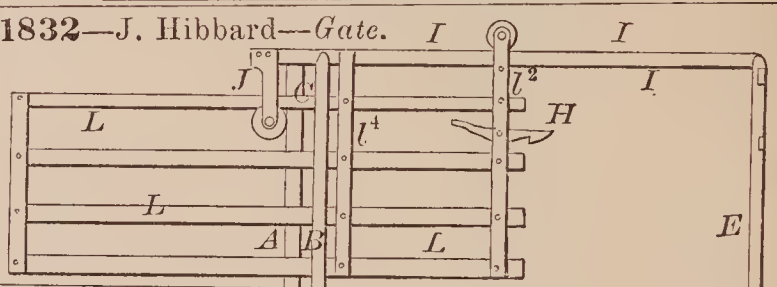 1832—J. Hibbard—Gate.
I I
J C l² I
L H
l⁴
L
A B L E